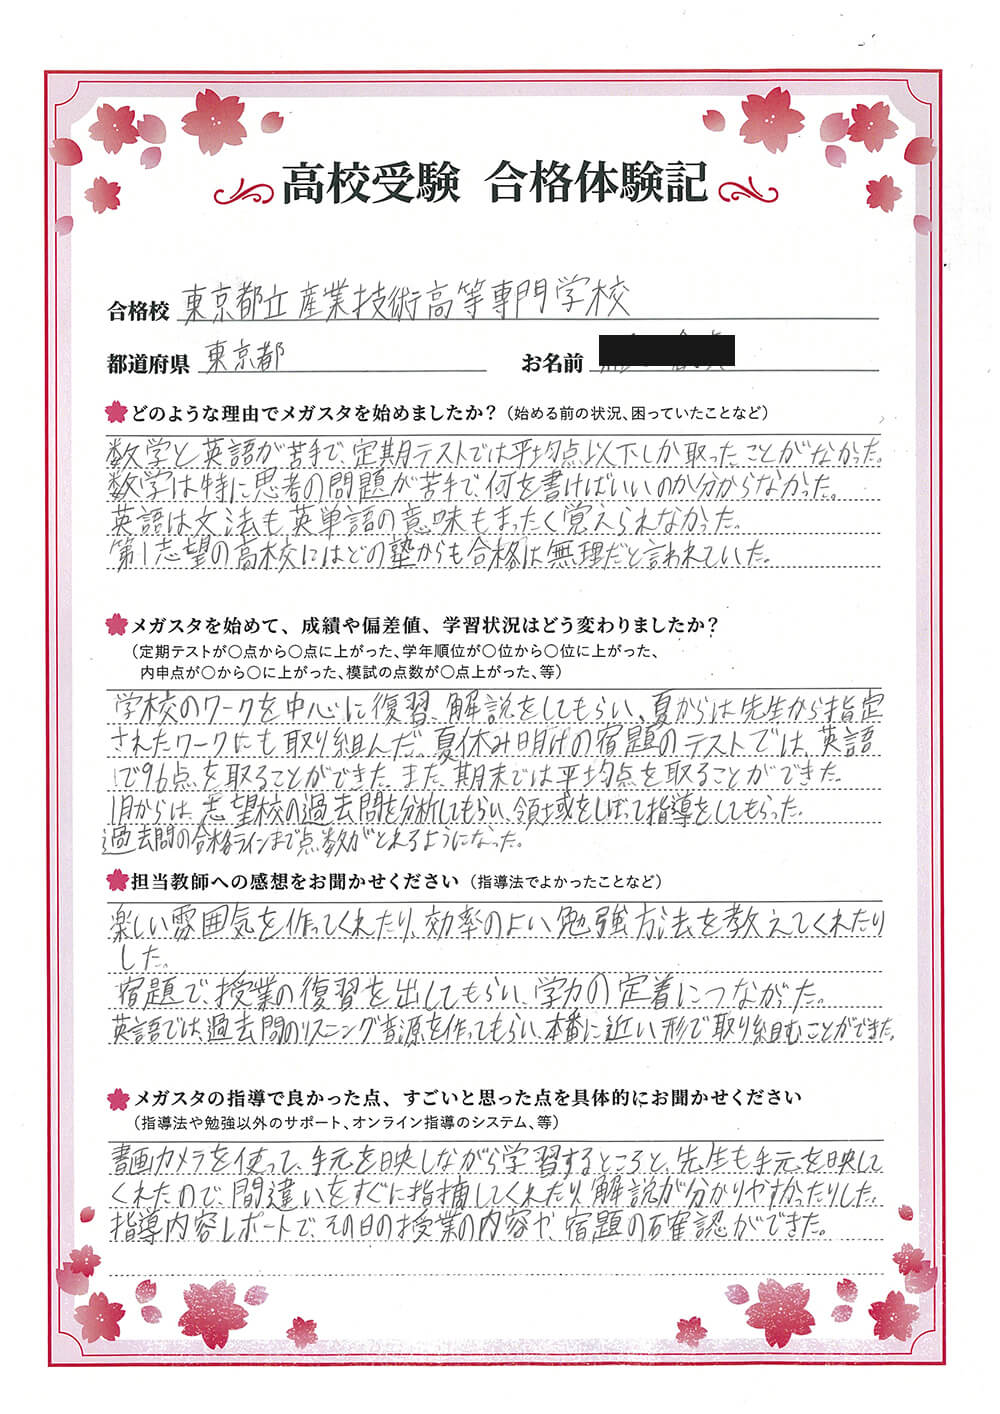 高校受験 合格体験記
合格校 東京都立産業技術高等専門学校
都道府県 東京都 お名前
どのような理由でメガスタを始めましたか？（始める前の状況、困っていたことなど）
数学と英語が苦手で、定期テストでは平均点以下しか取ったことがなかった。
数学は特に思考の問題が苦手で、何を書けばいいのか分からなかった。
英語は文法も英単語の意味もまったく覚えられなかった。
第1志望の高校にはどの塾からも合格は無理だと言われていた。
メガスタを始めて、成績や偏差値、学習状況はどう変わりましたか？
（定期テストが〇点から〇点に上がった、学年順位が〇位から〇位に上がった、
内申点が〇から〇に上がった、模試の点数が〇点上がった、等）
学校のワークを中心に復習、解説をしてもらい、夏からは先生から指定
されたワークにも取り組んだ。夏休み明けの宿題のテストでは、英語
で96点を取ることができた。また、期末では平均点を取ることができた。
1月からは、志望校の過去問を分析してもらい、領域をしぼって指導をしてもらった。
過去問の合格ラインまで点数がとれるようになった。
担当教師への感想をお聞かせください（指導法でよかったことなど）
楽しい雰囲気を作ってくれたり、効率のよい勉強方法を教えてくれたり
した。
宿題で、授業の復習を出してもらい、学力の定着につながった。
英語では、過去問のリスニング音源を作ってもらい、本番に近い形で取り組むことができた。
メガスタの指導で良かった点、すごいと思った点を具体的にお聞かせください
（指導法や勉強以外のサポート、オンライン指導のシステム、等）
書画カメラを使って、手元を映しながら学習するところと、先生も手元を映して
くれたので、間違いをすぐに指摘してくれたり、解説が分かりやすかったりした。
指導内容レポートで、その日の授業の内容や、宿題の確認ができた。